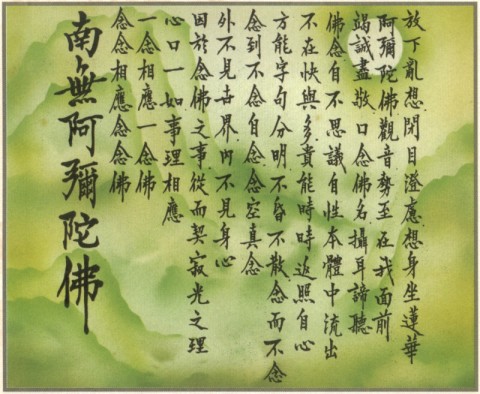 放下亂想閉目澄慮想身坐蓮華
阿彌陀佛觀音勢至在我面前
竭誠盡敬口念佛名攝耳諦聽
佛念自不思議自性本體中流出
不在快與多貴能時時返照自心
方能字句分明不昏不散念而不念
念到不念自念念空真念
外不見世界內不見身心
因於念佛之事從而契寂光之理
心口一如事理相應
一念相應一念佛
念念相應念念佛
南無阿彌陀佛